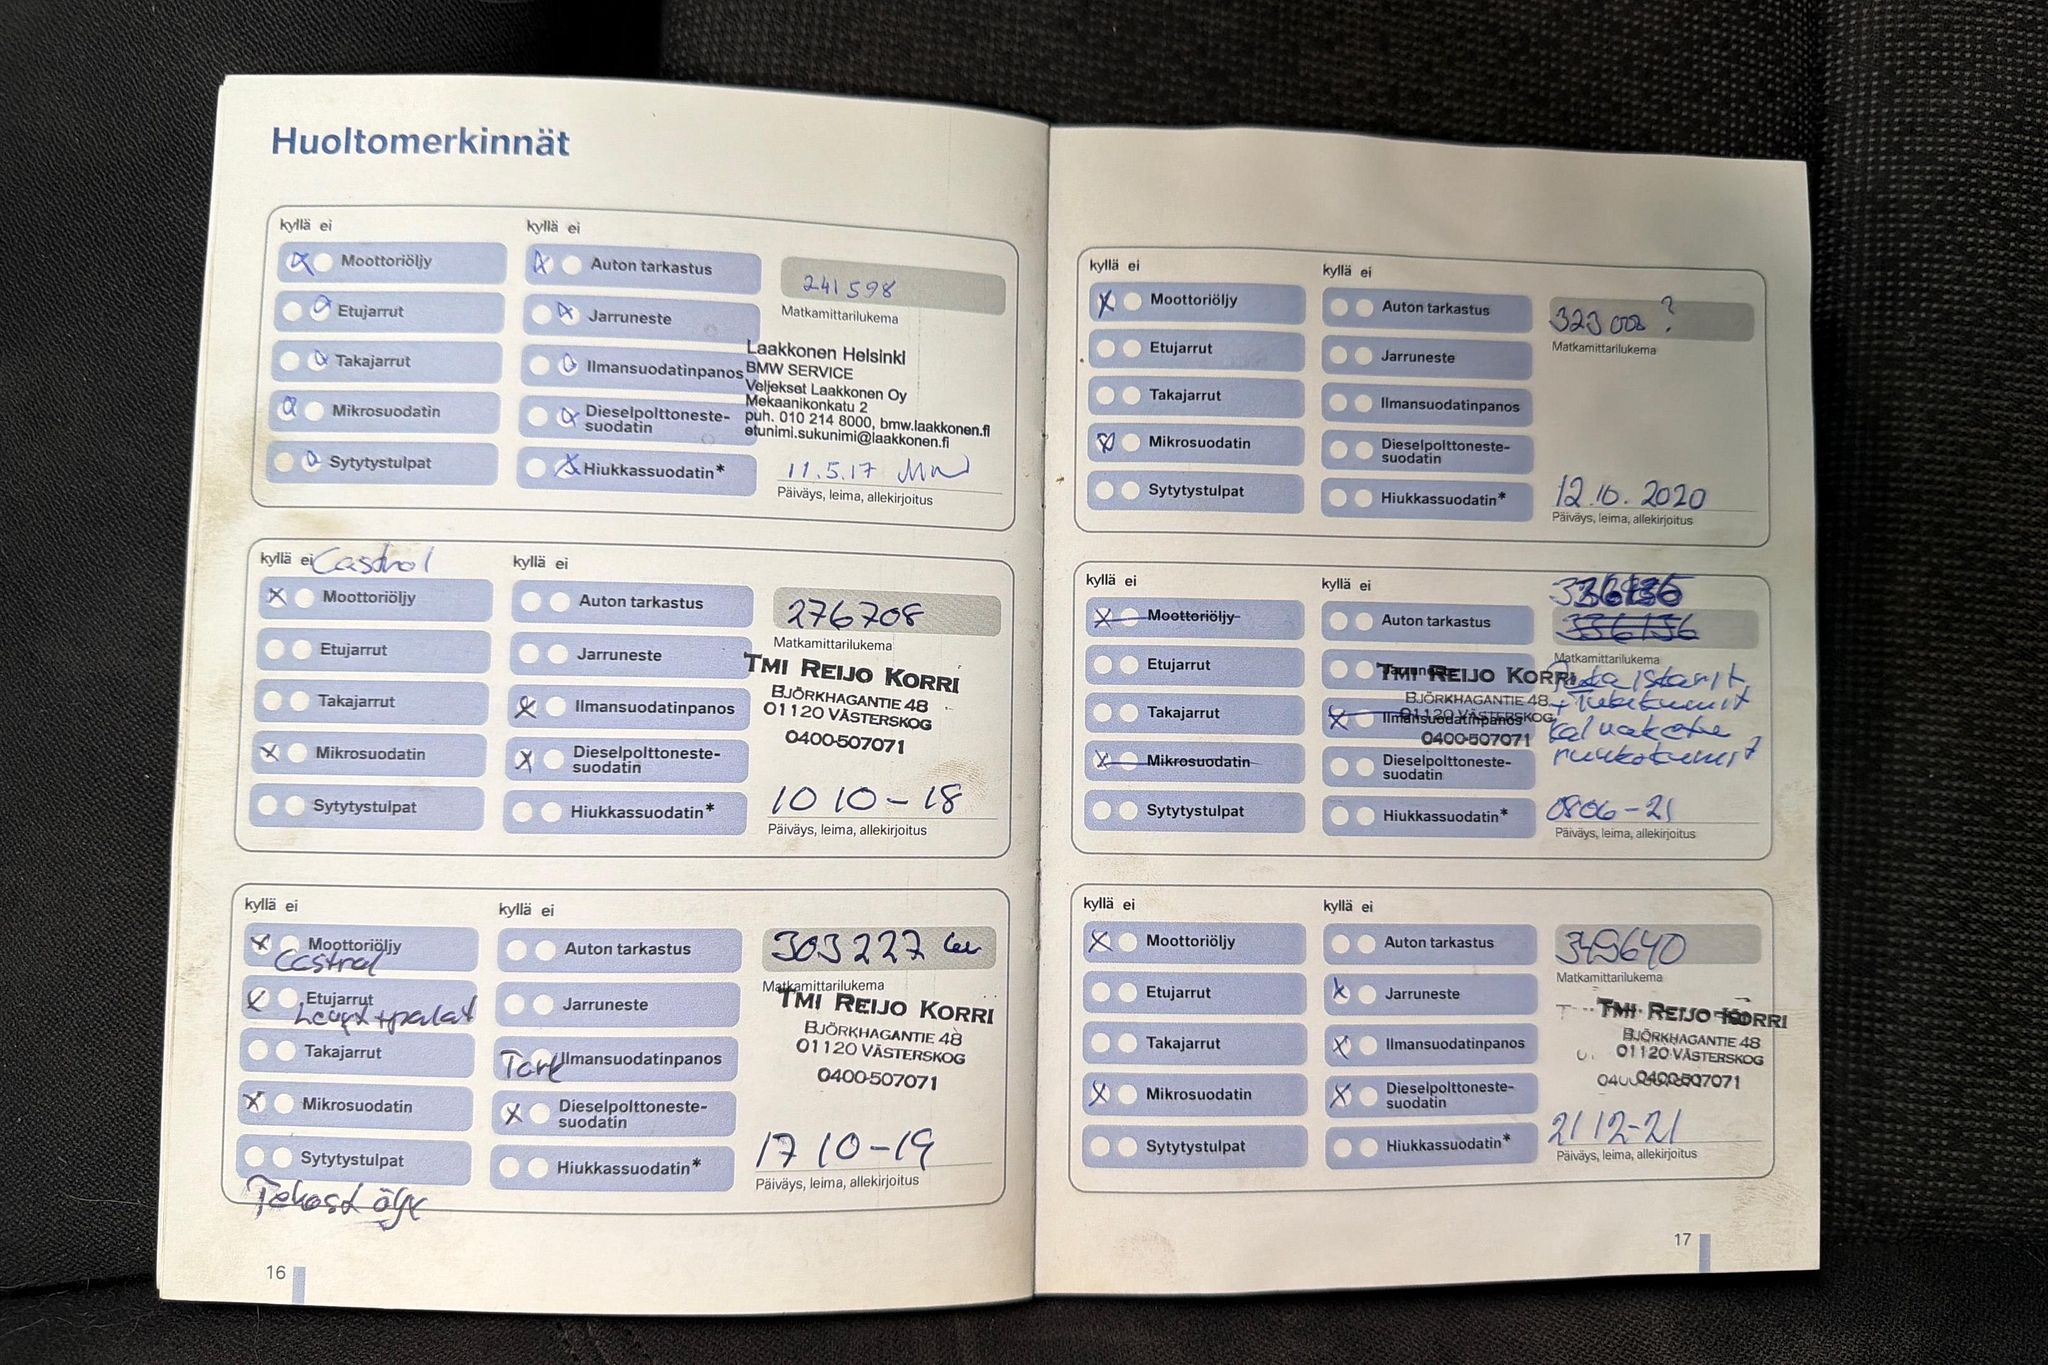 Huoltomerkinnät
kyllä ei
Moottoriöljy
Etujarrut
Takajarrut
Mikrosuodatin
Sytytystulpat
kyllä ei
Auton tarkastus
Jarruneste
Ilmansuodatinpanos
Dieselpolttoneste-
suodatin
Hiukkassuodatin*
241598
Matkamittarilukema
Laakkonen Helsinki
BMW SERVICE
Veljekset Laakkonen Oy
Mekaanikonkatu 2
puh. 010 214 8000, bmw.laakkonen.fi
etunimi.sukunimi@laakkonen.fi
11.5.17
Päiväys, leima, allekirjoitus
kyllä ei Castrol
Moottoriöljy
Etujarrut
Takajarrut
Mikrosuodatin
Sytytystulpat
kyllä ei
Auton tarkastus
Jarruneste
Ilmansuodatinpanos
Dieselpolttoneste-
suodatin
Hiukkassuodatin*
276708
Matkamittarilukema
TMI REIJO KORRI
BJÖRKHAGANTIE 48
01120 VÄSTERSKOG
0400-507071
10 10-18
Päiväys, leima, allekirjoitus
kyllä ei
Moottoriöljy
Castrol
Etujarrut
Levyt+palat
Takajarrut
Mikrosuodatin
Sytytystulpat
kyllä ei
Auton tarkastus
Jarruneste
Tark Ilmansuodatinpanos
Dieselpolttoneste-
suodatin
Hiukkassuodatin*
303227
Matkamittarilukema
TMI REIJO KORRI
BJÖRKHAGANTIE 48
01120 VÄSTERSKOG
0400-507071
17 10-19
Päiväys, leima, allekirjoitus
16
kyllä ei
Moottoriöljy
Etujarrut
Takajarrut
Mikrosuodatin
Sytytystulpat
kyllä ei
Auton tarkastus
Jarruneste
Ilmansuodatinpanos
Dieselpolttoneste-
suodatin
Hiukkassuodatin*
323000 ?
Matkamittarilukema
12.10.2020
Päiväys, leima, allekirjoitus
kyllä ei
Moottoriöljy
Etujarrut
Takajarrut
Mikrosuodatin
Sytytystulpat
kyllä ei
Auton tarkastus
Jarruneste
Ilmansuodatinpanos
Dieselpolttoneste-
suodatin
Hiukkassuodatin*
336136
Matkamittarilukema
TMI REIJO KORRI
BJÖRKHAGANTIE 48
01120 VÄSTERSKOG
0400-507071
0806-21
Päiväys, leima, allekirjoitus
kyllä ei
Moottoriöljy
Etujarrut
Takajarrut
Mikrosuodatin
Sytytystulpat
kyllä ei
Auton tarkastus
Jarruneste
Ilmansuodatinpanos
Dieselpolttoneste-
suodatin
Hiukkassuodatin*
349640
Matkamittarilukema
TMI REIJO KORRI
BJÖRKHAGANTIE 48
01120 VÄSTERSKOG
0400-507071
21 12-21
Päiväys, leima, allekirjoitus
17